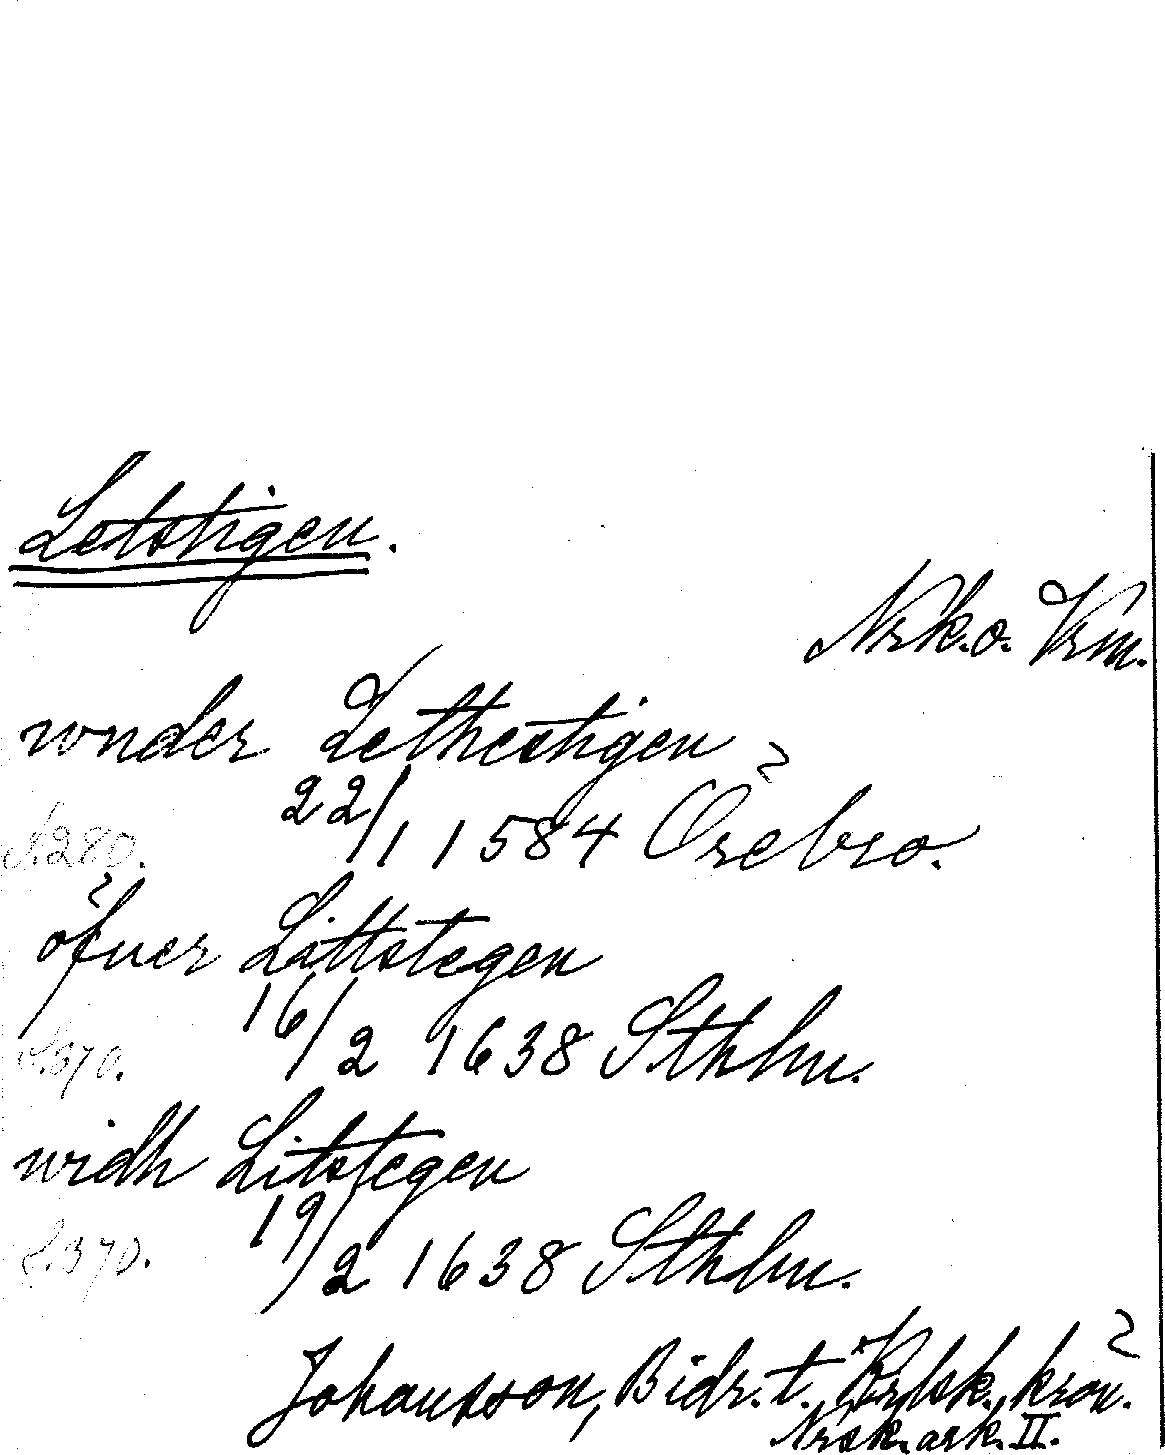 Letstigen.
Nrk. o. Vrm.
wnder Lethestigen
22/1 1584 Örebro.
s. 280.
öfuer Littstegen
16/2 1638 Sthlm.
s. 370.
widh Litstegen
19/2 1638 Sthlm.
s. 370.
Johansson, Bidr. t. krön.
Nrsk. ark. II.